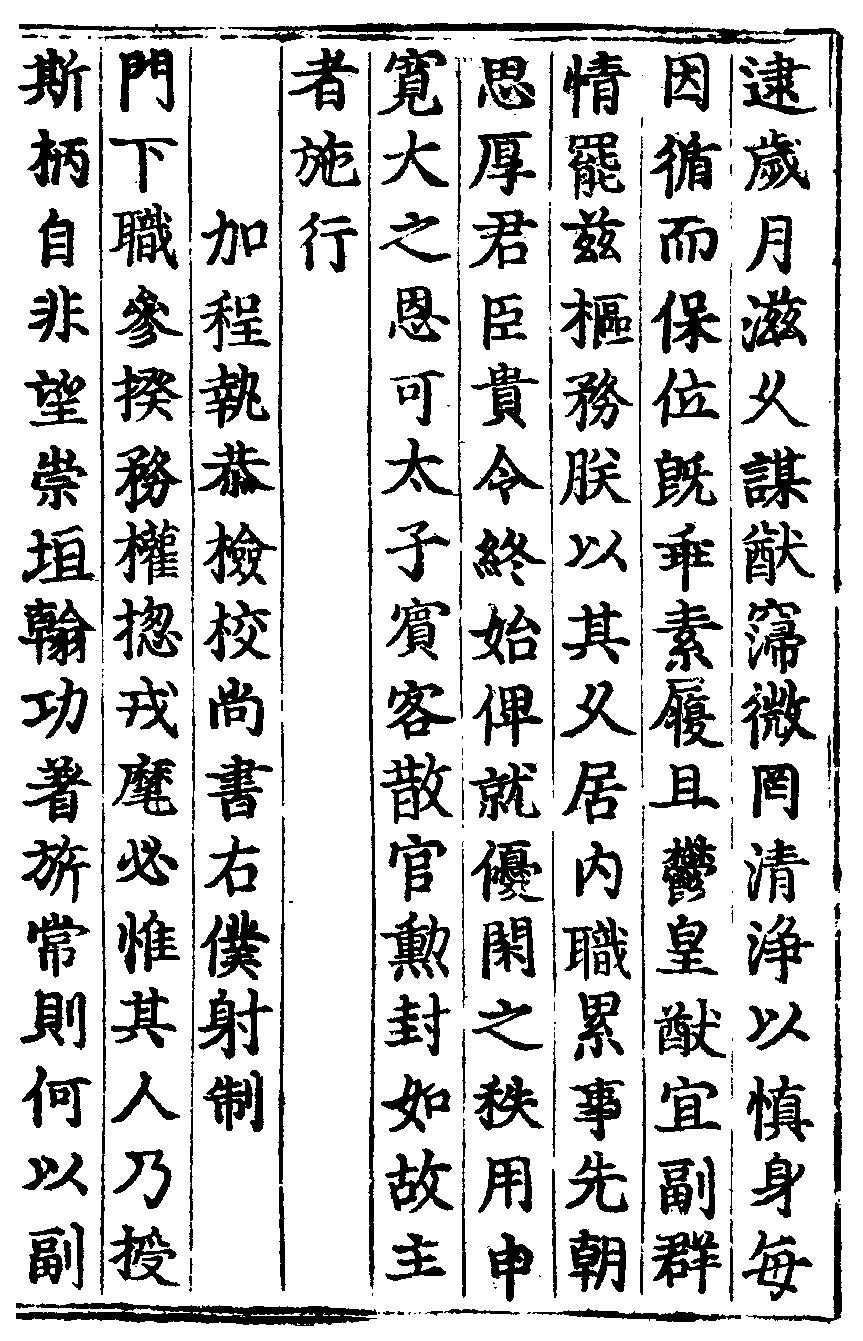 逮歲月滋乆謀猷窂微罔清浄以慎身每
因循而保位旣乖素履且鬱皇猷宜副群
情罷兹樞務朕以其乆居内職累事先朝
思厚君臣貴令終始俾就優閑之秩用申
寛大之恩可太子賔客散官勲封如故主
者施行
加程執恭檢校尚書右僕射制
門下職參揆務權揔戎麾必惟其人乃授
斯柄自非望崇垣翰功著旂常則何以副